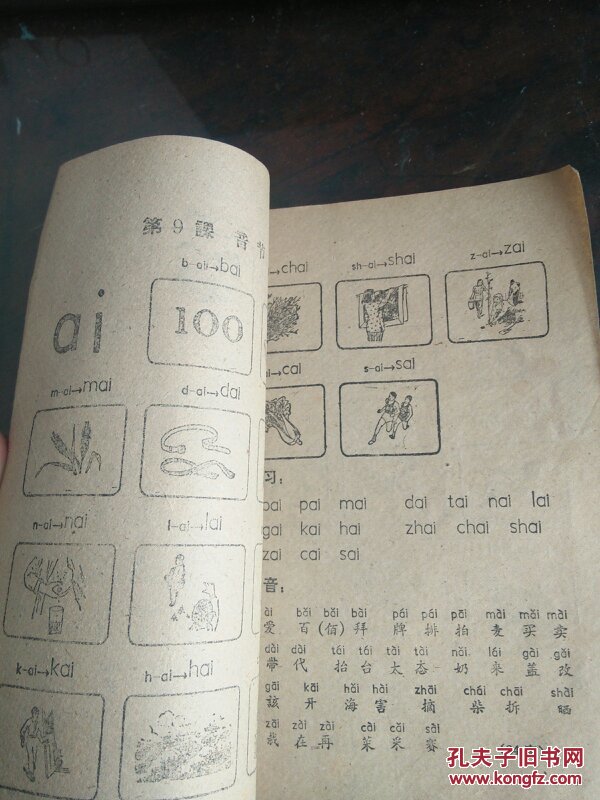 第9课 音节
b-ai→bai
ai
100
m-ai→mai d-ai→dai
n-ai→nai l-ai→lai
k-ai→kai h-ai→hai
→chai sh-ai→shai z-ai→zai
→cai s-ai→sai
习:
bai pai mai dai tai nai lai
gai kai hai zhai chai shai
zai cai sai
音:
ài bǎi bǎi bài pái pái pāi mài mǎi mài
爱 百(佰)拜 牌 排 拍 麦 买 卖
dài dài tái tái tài tài nǎi lái gài gǎi
带 代 抬 台 太 态 奶 来 盖 改
gāi kāi hǎi hài zhāi chái chāi shài
該 开 海 害 摘 柴 拆 晒
zāi zài zài cài cǎi sài
哉 在 再 菜 采 赛
孔夫子旧书网
www.kongfz.com